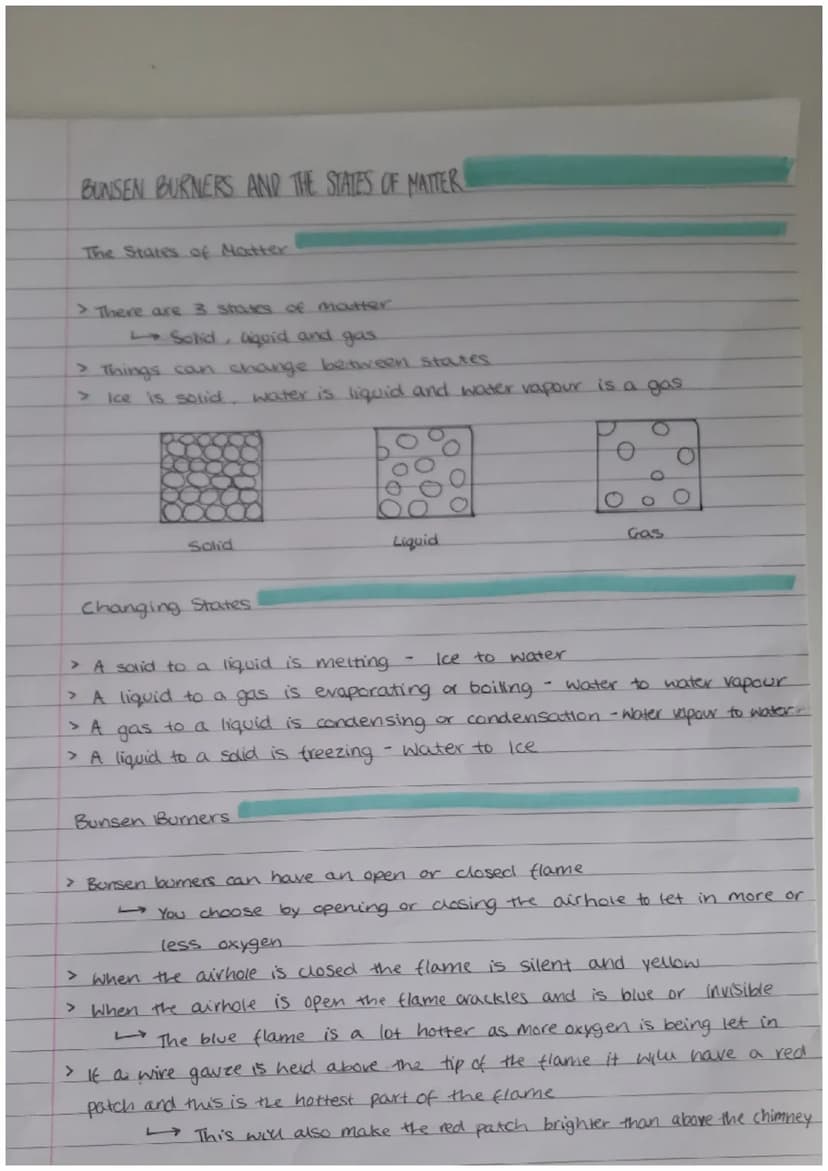 BUNSEN BURNERS AND THE STATES OF MATTER
The States of Matter
> There are 3 states of matter
↳ Solid, liquid and gas
> Things can change between states
> Ice is solid, water is liquid and water vapour is a gas
Solid Liquid Gas
Changing States
> A solid to a liquid is melting - Ice to water
> A liquid to a gas is evaporating or boiling - water to water vapour
> A gas to a liquid is condensing or condensation - water vapour to water
> A liquid to a solid is freezing - Water to Ice
Bunsen Burners
> Bunsen burners can have an open or closed flame
↳ You choose by opening or closing the airhole to let in more or
less oxygen
> When the airhole is closed the flame is silent and yellow
> When the airhole is open the flame crackles and is blue or invisible
↳ The blue flame is a lot hotter as more oxygen is being let in
> If a wire gauze is held above the tip of the flame it will have a red
patch and this is the hottest part of the flame
↳ This will also make the red patch brighter than above the chimney